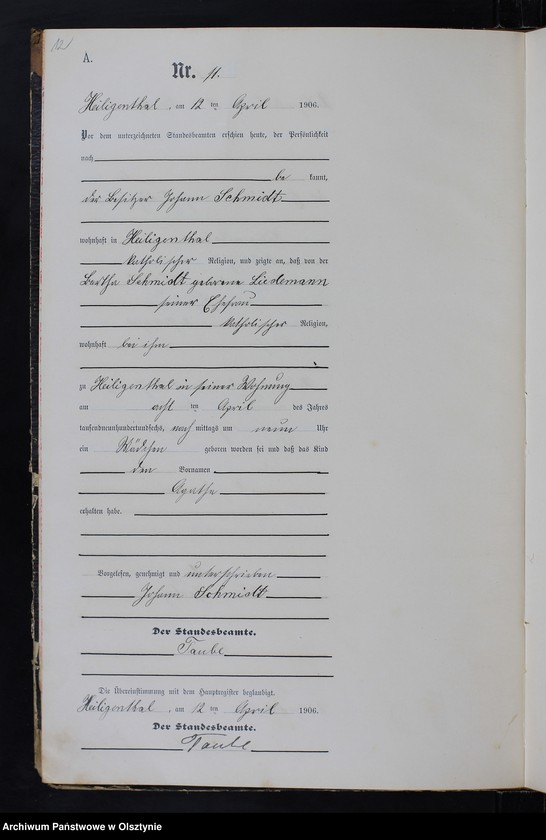 12
A.
Nr. 11.
Heiligenthal, am 12 ten April 1906.
Vor dem unterzeichneten Standesbeamten erschien heute, der Persönlichkeit
nach
be kannt,
der Besitzer Johann Schmidt
wohnhaft in Heiligenthal
katholischer Religion, und zeigte an, daß von der
Bertha Schmidt geborene Liedemann
seiner Ehefrau
katholischer Religion,
wohnhaft bei ihm
zu Heiligenthal in seiner Wohnung
am acht ten April des Jahres
tausendneunhundertundsechs, nach mittags um neun Uhr
ein Mädchen geboren worden sei und daß das Kind
den Vornamen
Agathe
erhalten habe.
Vorgelesen, genehmigt und unterschrieben
Johann Schmidt
Der Standesbeamte.
Taube
Die Übereinstimmung mit dem Hauptregister beglaubigt.
Heiligenthal, am 12 ten April 1906.
Der Standesbeamte.
Taube
Archiwum Państwowe w Olsztynie